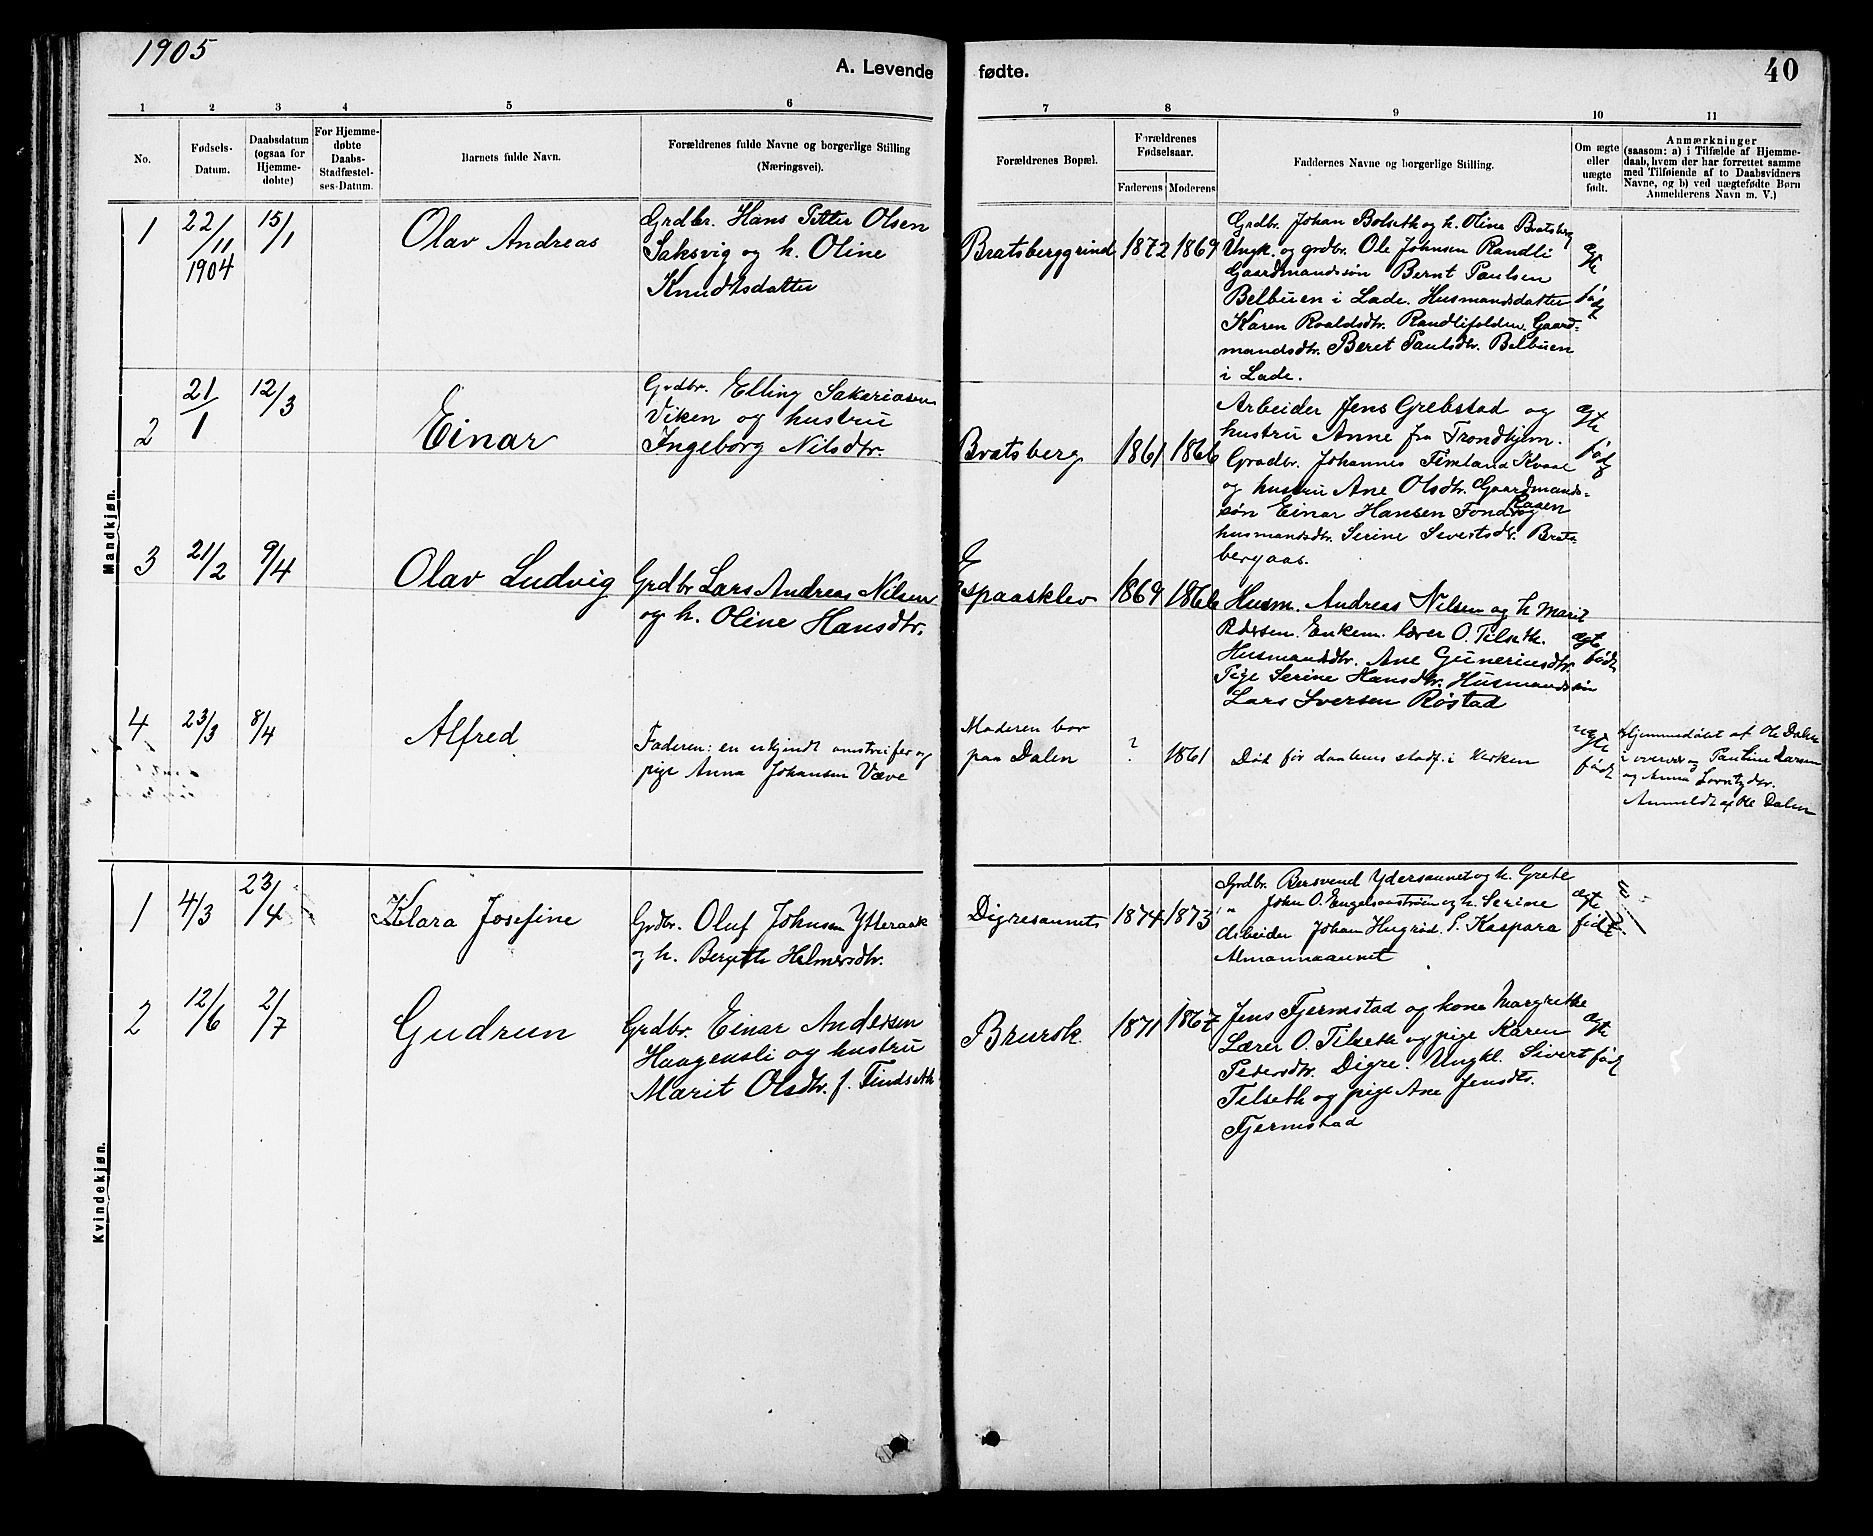 1905
A. Levende
fødte.
40
1
2
3
4
5
6
7
8
9
10
11
No.
Fødsels-
Datum.
Daabsdatum
(ogsaa for
Hjemme-
døbte)
For Hjemme-
døbte
Daabs-
Stadfæstel-
ses-Datum.
Barnets fulde Navn.
Forældrenes fulde Navne og borgerlige Stilling
(Næringsvei).
Forældrenes Bopæl.
Forældrenes
Fødselsaar.
Faderens
Moderens
Faddernes Navne og borgerlige Stilling.
Om ægte
eller
uægte
født.
Anmærkninger
(saasom: a) i Tilfælde af Hjemme-
daab, hvem der har forrettet samme
med Tilføiende af to Daabsvidners
Navne, og b) ved uægtefødte Børn
Anmelderens Navn m. V.)
Mandkjøn.
1
22/11
1904
15/1
Olav Andreas
Grdbr. Hans Petter Olsen
Saksvig og h. Oline
Knudtsdatter
Bratsberggrind
1872
1869
Grdbr. Johan Bolseth og h. Oline Bratsberg
Ungk. og grdbr. Ole Johnsen Randli
Gaardmandssøn Bernt Paulsen
Belbuen i Lade. Husmandsdatter
Karen Roaldsdtr. Randlifolden. Gaard-
mandsdtr. Beret Paulsdtr. Belbuen
i Lade.
ægte
født
2
21/1
12/3
Einar
Grdbr. Elling Sakariasen
Viken og hustru
Ingeborg Nilsdtr.
Bratsberg
1861
1866
Arbeider Jens Grebstad og
hustru Anne fra Trondhjem.
Grdbr. Johannes Kvaal
og hustru Ane Olsdtr. Gaardmands-
søn Einar Hansen
husmandsdtr. Serine Sivertsdtr. Brats-
bergaas.
ægte
født
3
21/2
9/4
Olav Ludvig
Grdbr Lars Andreas Nilsen
og h. Oline Hansdtr.
Espaasklev
1869
1866
Husm. Andreas Nilsen og h Marit
Pedersen. Enkem. lærer O. Tilseth.
Husmandsdtr. Ane Guneriusdtr.
Pige Serine Hansdtr. Husmandssøn
Lars Iversen Røstad
ægte
født
4
23/3
8/4
Alfred
Faderen: en ukjendt omstreifer og
pige Anna Johansen Væve
Moderen bor
paa Dalen
?
1861
Død før daabens stadf. i Kirken
uægte
født
Hjemmedøbt af Ole Dalen
i overvær og Pauline Larsen
og Anna
Anmeldt af Ole Dalen
Kvindekjøn.
1
4/3
23/4
Klara Josefine
Grdbr. Oluf Johnsen Ytteraak
og h. Bergith Helmersdtr.
Digresaunets
1874
1873
Grdbr. Bersvend Ydersaunet og h. Grete
" John O. Engelsaastrøen og h. Serine
Arbeider Johan Kaspara
Almannaaunet
ægte
født
2
12/6
2/7
Gudrun
Grdbr. Einar Andersen
Haagensli og hustru
Marit Olsdtr. f. Tindseth
Brurok
1871
1867
Jens Fjermstad og kone Margrethe
Lærer O. Tilseth og pige Karen
Pedersdtr. Digre. Ungkl. Sivert
Tilseth og pige Ane Jensdtr.
Fjermstad
ægte
født